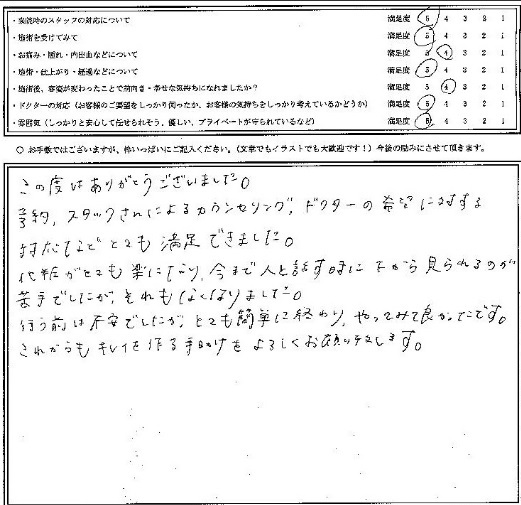 ・来院時のスタッフの対応について 満足度 5 4 3 2 1
・施術を受けてみて 満足度 5 4 3 2 1
・お痛み・腫れ・内出血などについて 満足度 5 4 3 2 1
・施術・仕上がり・経過などについて 満足度 5 4 3 2 1
・施術後、容姿が変わったことで前向き・幸せな気持ちになれましたか? 満足度 5 4 3 2 1
・ドクターの対応(お客様のご要望をしっかり伺ったか、お客様の気持ちをしっかり考えているかどうか) 満足度 5 4 3 2 1
・雰囲気(しっかりと安心して任せられそう、優しい、プライベートが守られているなど) 満足度 5 4 3 2 1
○ お手数ではございますが、枠いっぱいにご記入ください。(文章でもイラストでも大歓迎です!)今後の励みにさせて頂きます。
この度はありがとうございました。
予約、スタッフさんによるカウンセリング、ドクターの希望に対する
対応などとても満足できました。
化粧がとても楽になり、今まで人と話す時に下から見られるのが
苦手でしたが、それもなくなりました。
行う前は不安でしたが、とても簡単に終わり、やってみて良かったです。
これからもキレイを作る手助けをよろしくお願い致します。